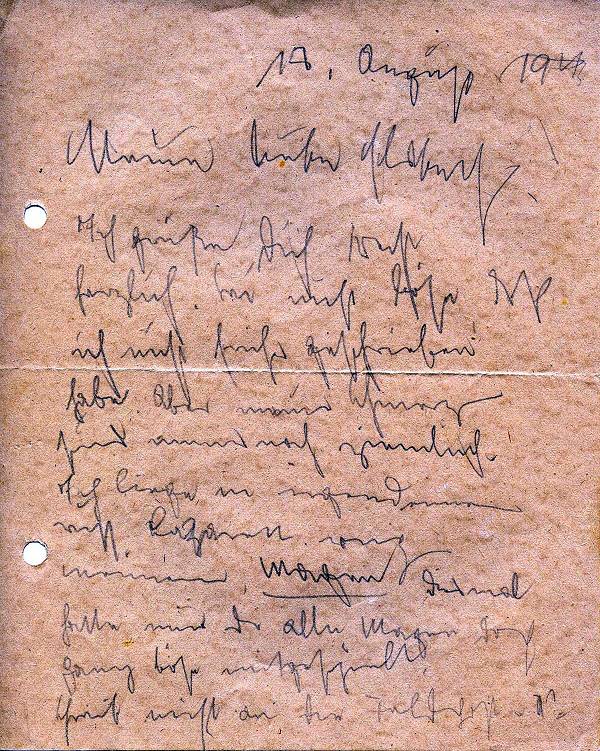 18. August 194
Meine liebe Elsbeth,
Ich grüße Dich recht
herzlich. Sei nicht böse daß
ich nicht früher geschrieben
habe. Aber meine Schmerzen
sind immer noch ziemlich.
Ich liege in
Lazarett weg
meinem Magen diesmal
hatte mir der alte Magen doch
ganz böse mitgespielt.
Schreib nicht an die Feldpost